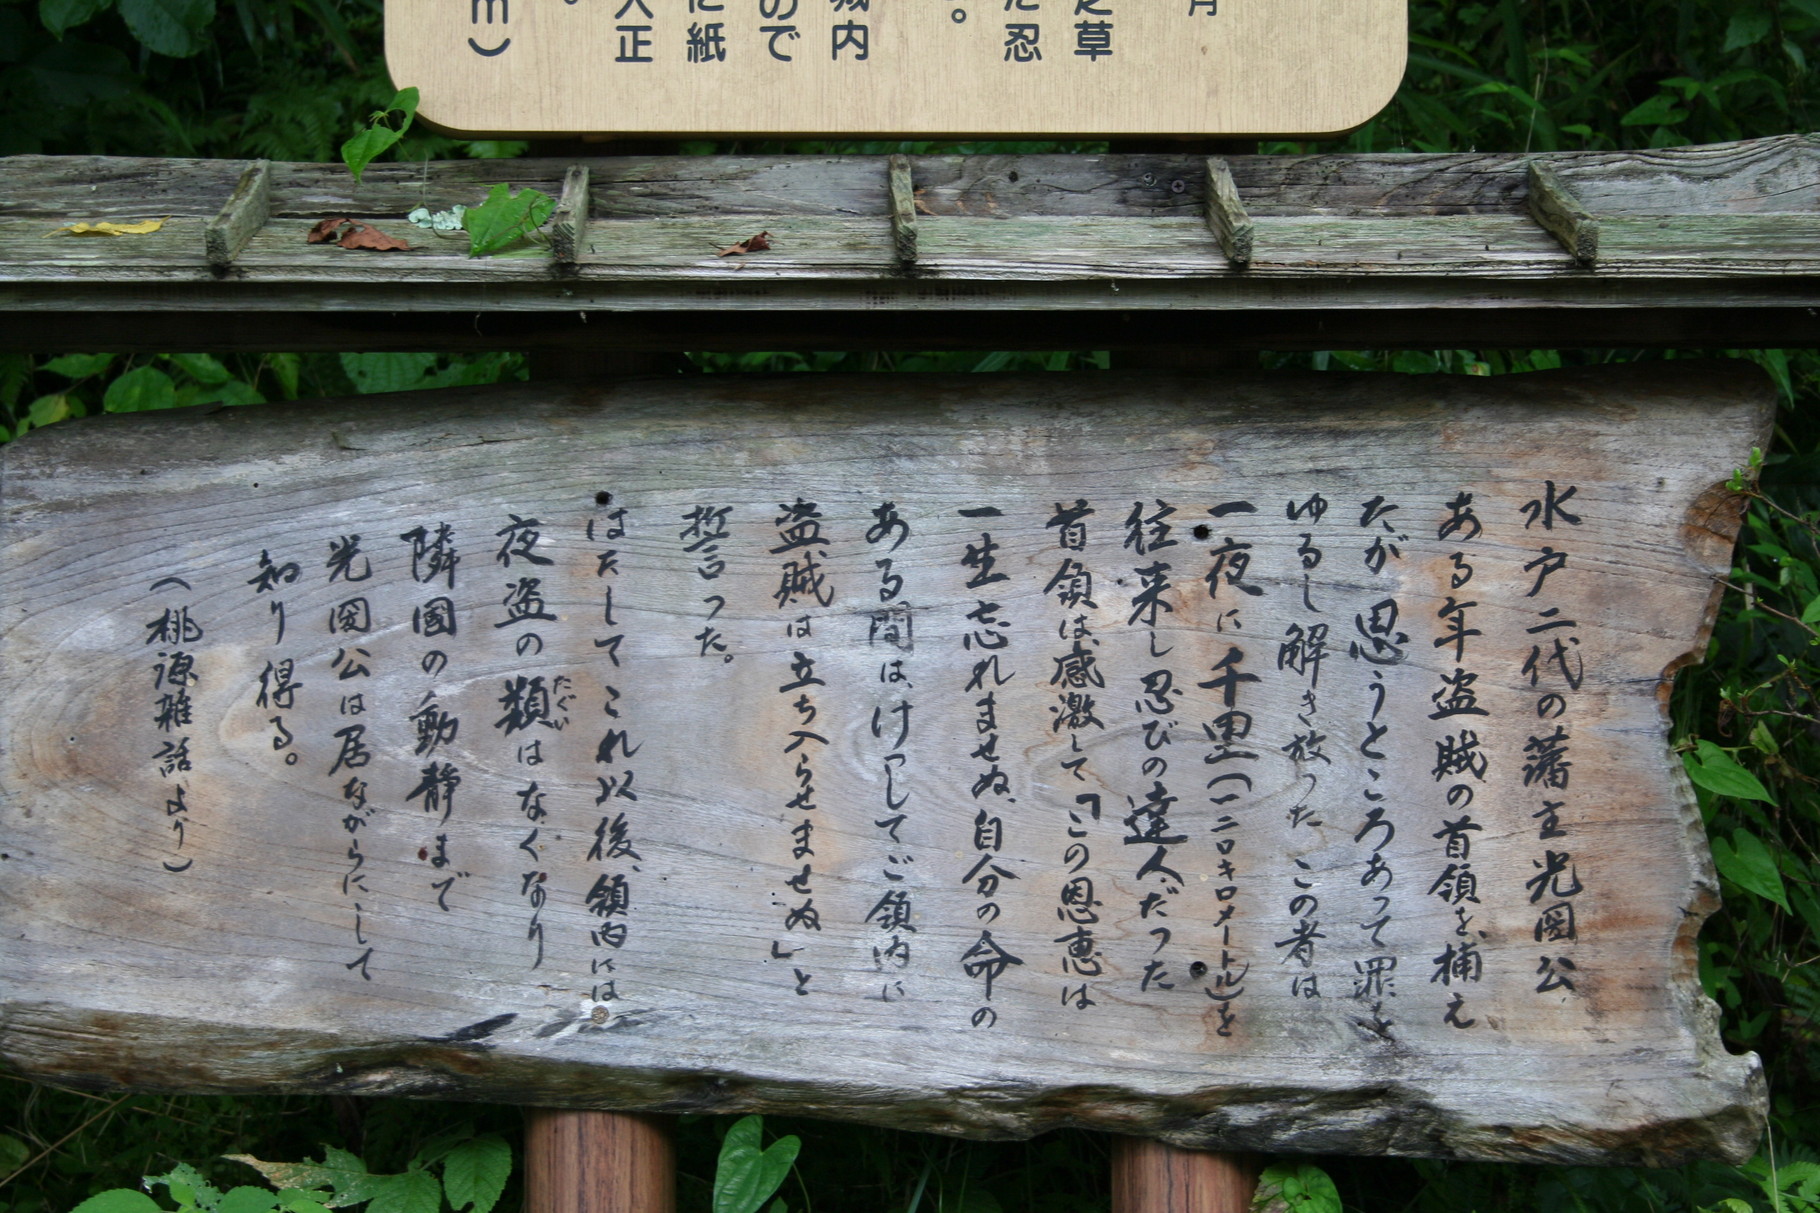 月
草
た忍
。
城内
ので
に紙
大正
。
m）
水戸二代の藩主光圀公
ある年盗賊の首領を、捕え
たが思うところあって罪を
ゆるし解き放った この者は
一夜に千里（一二〇キロメートル）を
往来し忍びの達人だった
首領は、感激して「この恩恵は
一生忘れませぬ、自分の命の
ある間は、けっしてご領内に
盗賊は立ち入らせませぬ」と
誓った。
はたして これ以後、領内には
夜盗の類はなくなり
たぐい
隣国の動静まで
光圀公は居ながらにして
知り得る。
（桃源雑話より）